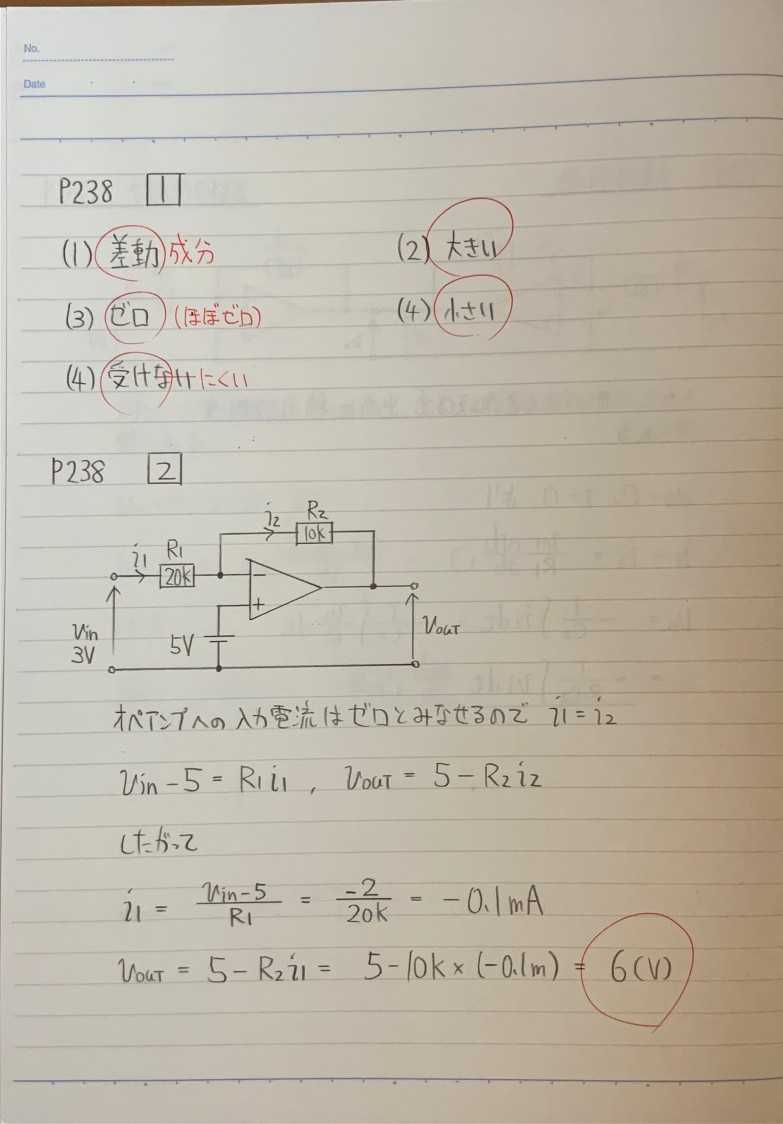 No.
Date
P238 1
(1) 差動成分 (2) 大きい
(3) ゼロ (ほぼゼロ) (4) 小さい
(4) 受けなけにくい
P238 2
i2 R2
10k
i1 R1
20k
−
+
Vin
3V
5V
VOUT
オペアンプへの入力電流はゼロとみなせるので i1 = i2
Vin − 5 = R1 i1 , VOUT = 5 − R2 i2
したがって
i1 = Vin−5 / R1 = −2 / 20k = −0.1mA
VOUT = 5 − R2 i1 = 5 − 10k × (−0.1m) = 6 (V)